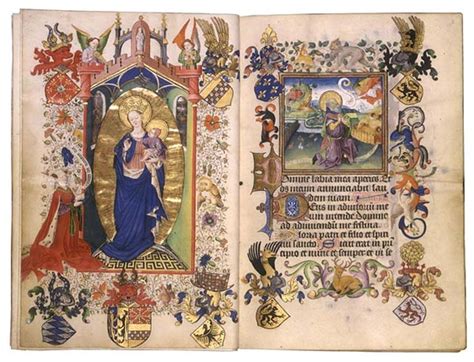 Domine labia mea aperies. Et
os meum annunciabit lau
dem tuam.
Deus in adiutoriu me
um intende Domine
ad adiuuandu me festina
Gloria patri et filio et spiri
tui sancto Sicut erat in pri
cipio et nunc et semper et i se